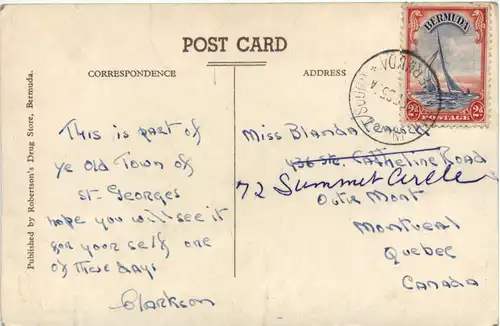 POST CARD
CORRESPONDENCE
ADDRESS
Published by Robertson's Drug Store, Bermuda.
This is part of
ye Old Town of
St-Georges
hope you will see it
for your self one
of these days
Clarkson
Miss Blanda
Catheline Road
72 Summit Circle
Outre Mont
Montreal
Quebec
Canada
BERMUDA
2d 2d
POSTAGE